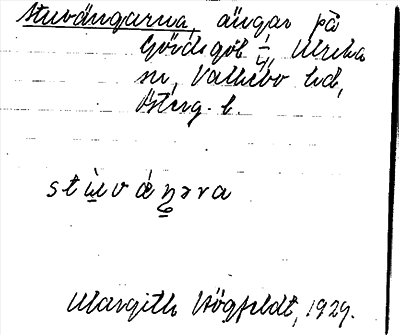 Stuvängarna, ängar på
Gördsgöl 1/4, Ulrika
sn, Valkebo hd,
Österg. l.
stu̲váŋəra
Margith Högfeldt, 1929.